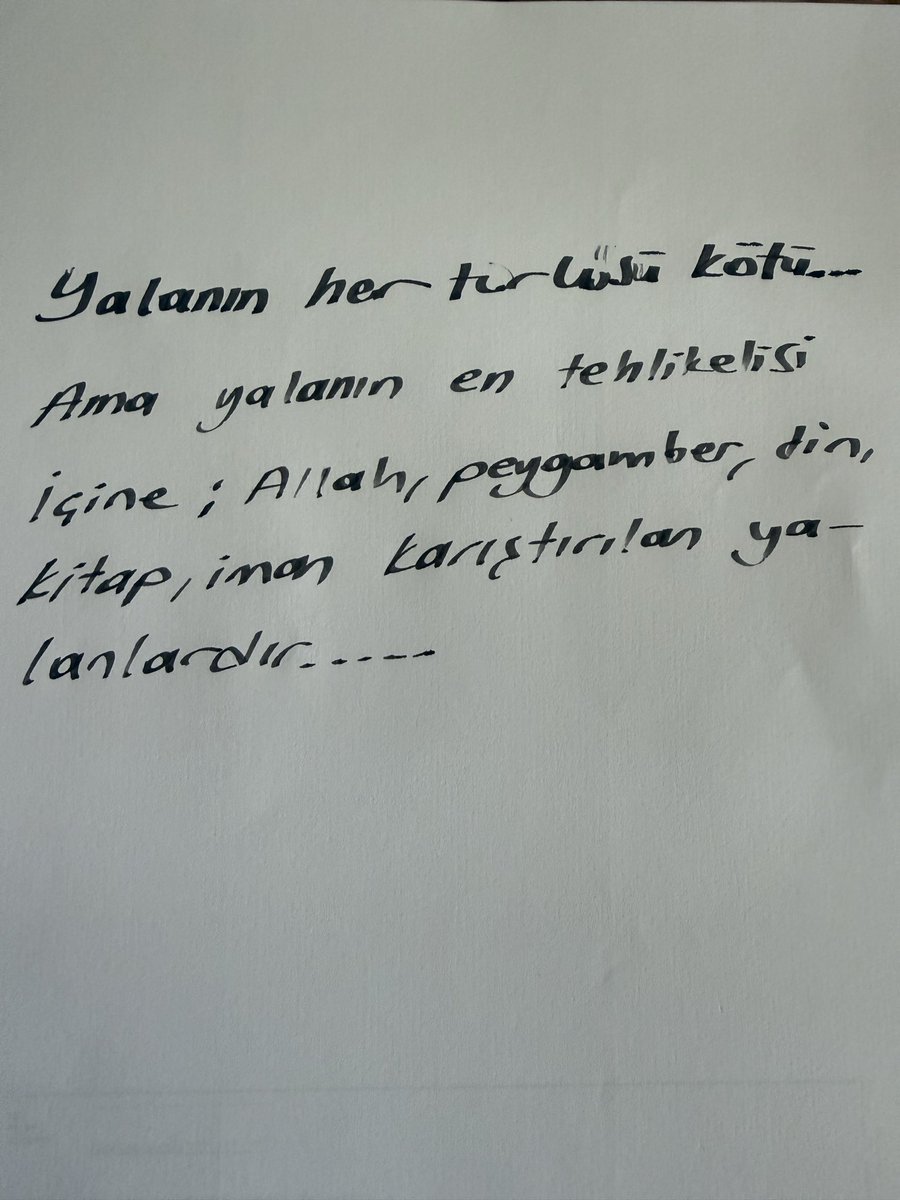 Yalanın her türlüsü kötü...
Ama yalanın en tehlikelisi
İçine ; Allah, peygamber, din,
kitap, iman karıştırılan ya-
lanlardır.....